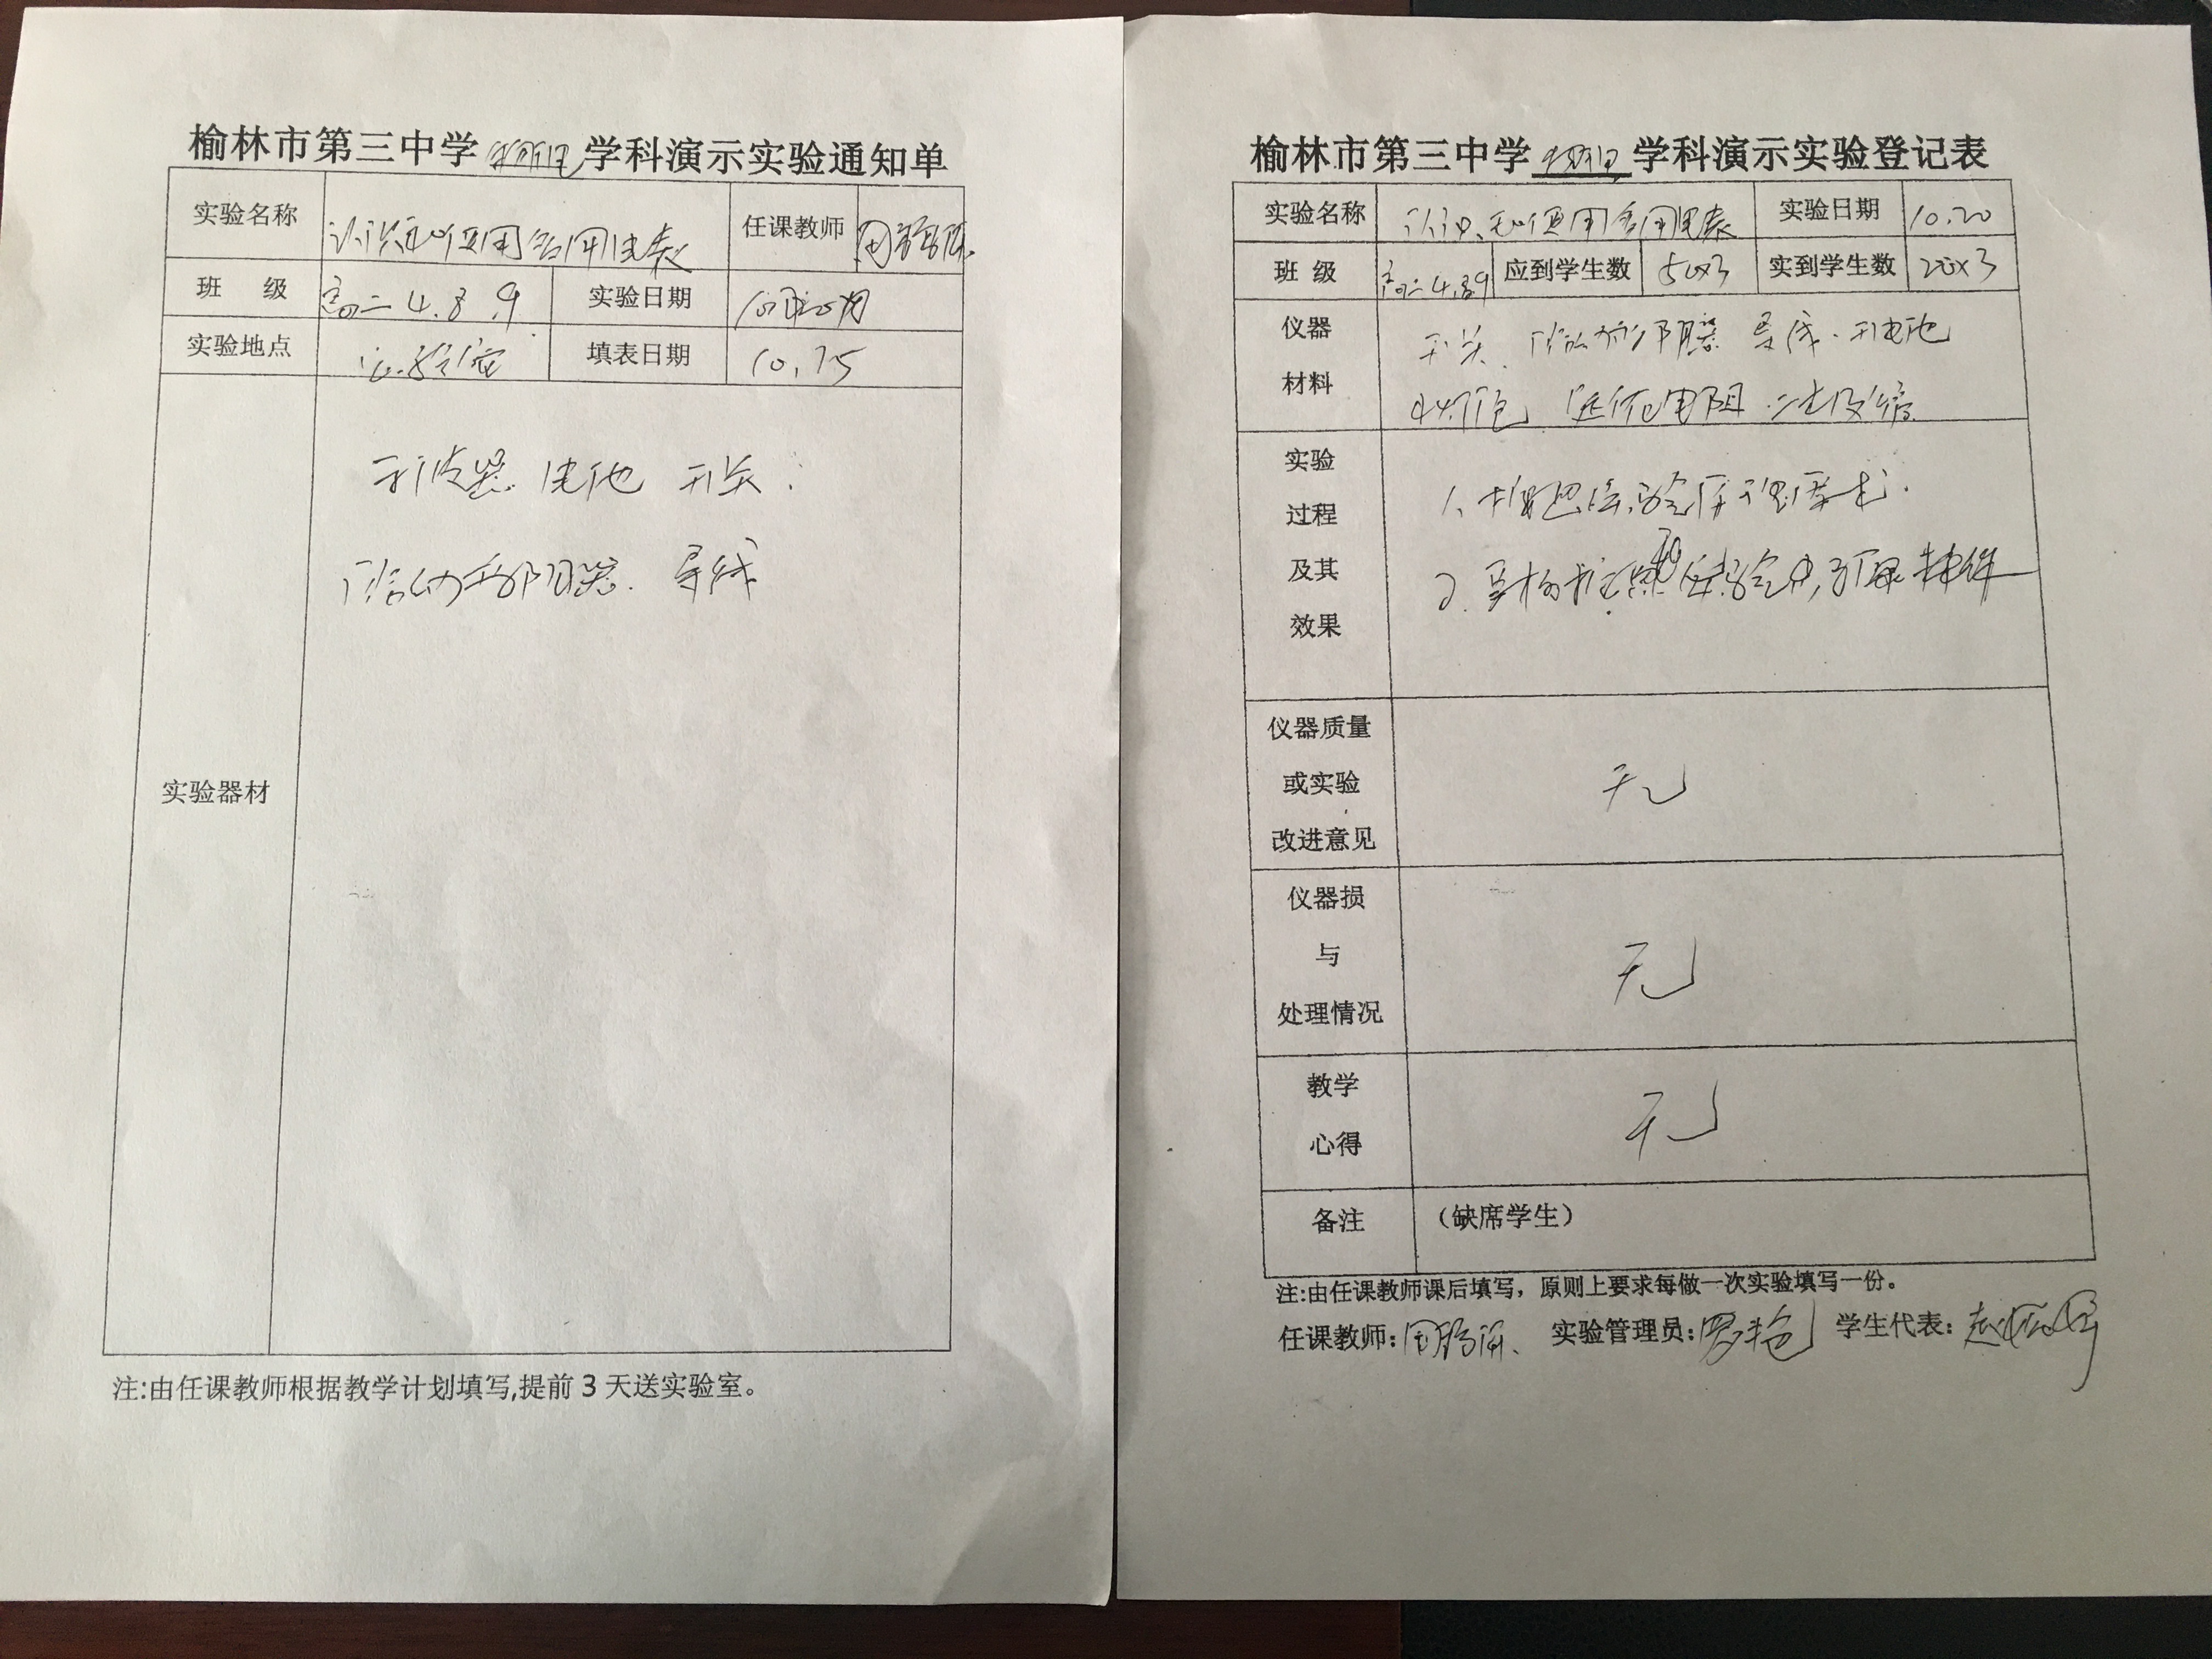 榆林市第三中学 物理 学科演示实验通知单
实验名称 认识和使用多用电表 任课教师
班 级 高二 4.8.9 实验日期 10月20日
实验地点 实验室 填表日期 10.15
实验器材
电池 开关
滑动变阻器. 导线
注:由任课教师根据教学计划填写,提前3天送实验室。
榆林市第三中学 物理 学科演示实验登记表
实验名称 认识和使用多用电表 实验日期 10.20
班 级 高二 4.8.9 应到学生数 50×3 实到学生数 20×3
仪器
材料
开关. 滑动变阻器 导线. 干电池
小灯泡 定值电阻 二极管
实验
过程
及其
效果
1.
2.
仪器质量
或实验
改进意见
无
仪器损
与
处理情况
无
教学
心得
无
备注 (缺席学生)
注:由任课教师课后填写，原则上要求每做一次实验填写一份。
任课教师: 实验管理员: 学生代表: